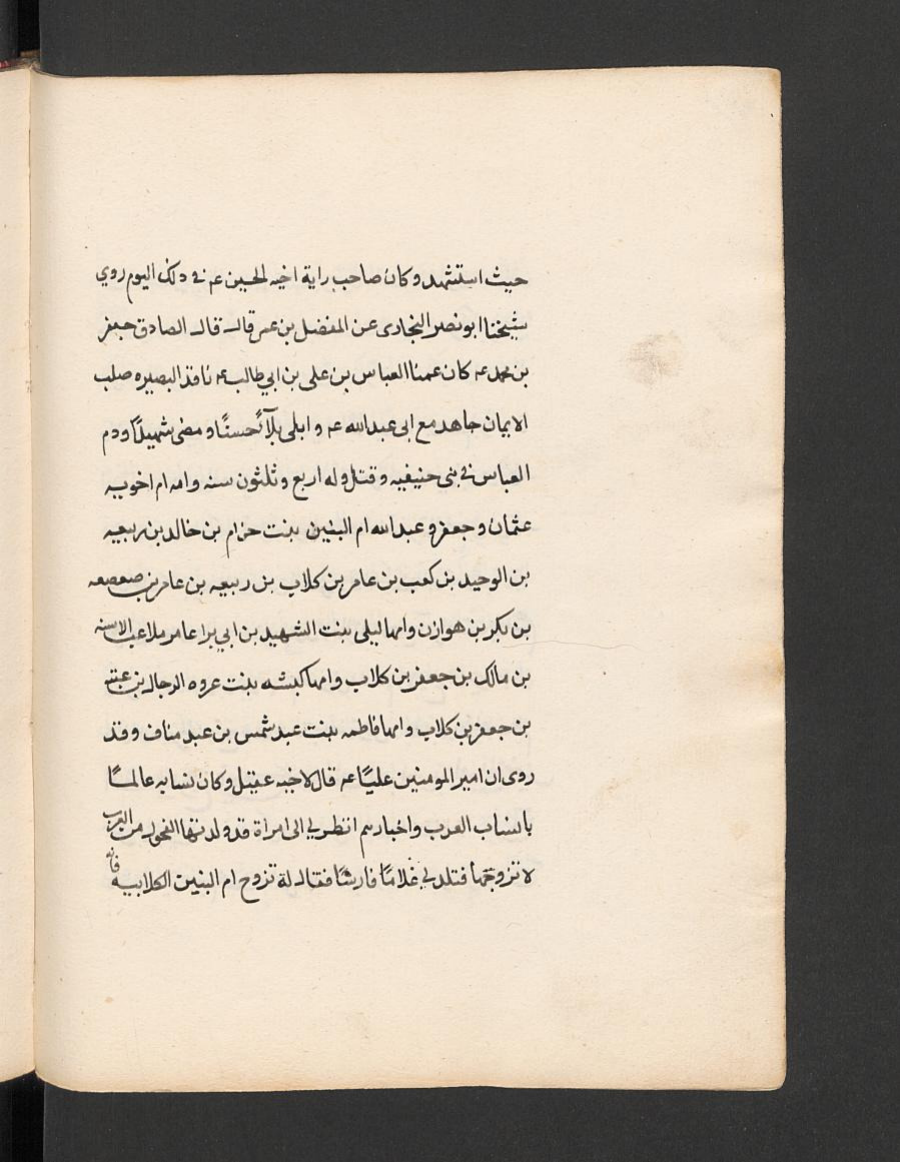 حيث استشهد وكان صاحب راية اخيه الحسين عم في ذلك اليوم روي
شيخنا ابو نصر البخارى عن المفضل بن عمر قال قال الصادق جعفر
بن محمد عم كان عمنا العباس بن على بن ابي طالب عم نافذ البصيره صلب
الايمان جاهد مع ابى عبدالله عم و ابلى بلآئً حسنًا و مضى شهيدًا ودم
العباس في بنى حنيفيه و قتل وله اربع وثلثون سنه وامه ام اخويه
عثمان وجعفر و عبدالله ام البنين بنت حزام بن خالد بن ربيعيه
بن الوحيد بن كعب بن عامر بن كلاب بن ربيعه بن عامر بن صعصعه
بن بكر بن هوازن وامها ليلى بنت الشهيد بن ابي برا عامر ملاعب الاسنه
بن مالك بن جعفر بن كلاب وامها كبشه بنت عروه الرحال بن عتبه
بن جعفر بن كلاب وامها فاطمه بنت عبد شمس بن عبد مناف وقد
روى ان امير المومنين عليًا عم قال لاخيه عقيل وكان نسابه عالمًا
بانساب العرب واخبارهم انظر لي الى امراة قد ولدتها الفحول من العرب
لاتزوجها فتلد لي غلامًا فارسًا فقال له تزوج ام البنين الكلابيه فانه